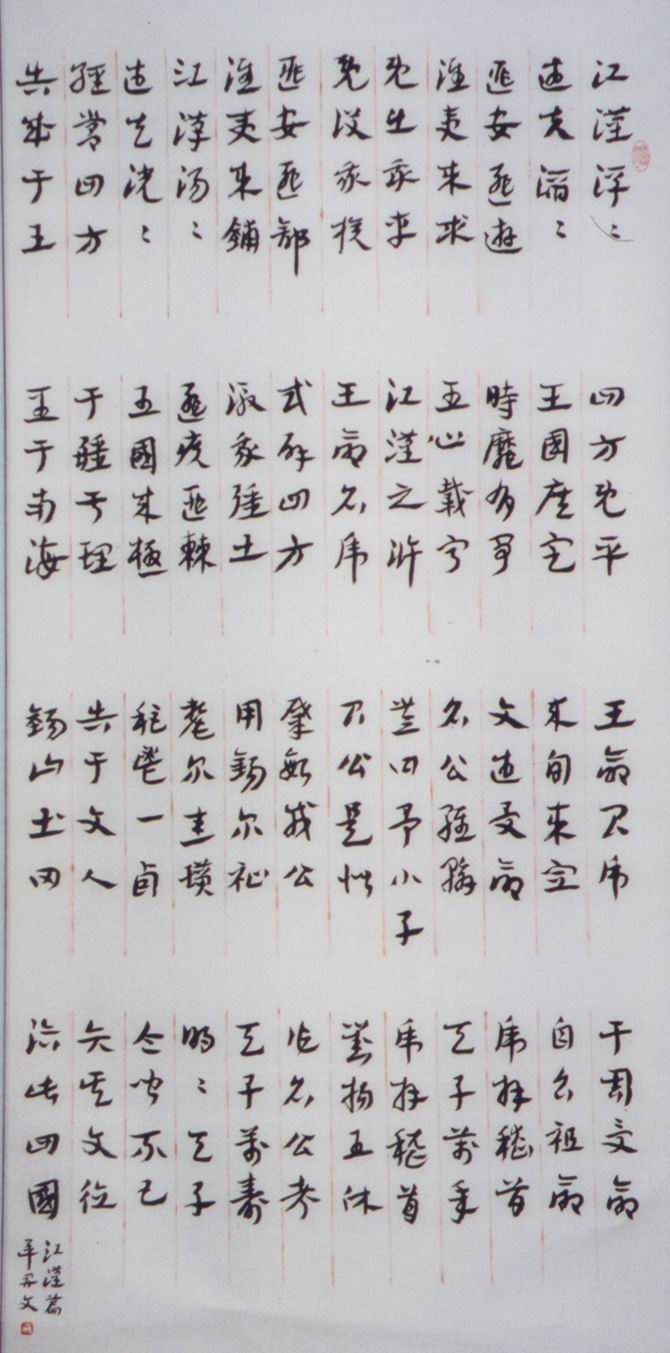 江漢浮〻
武夫滔〻
匪安匪遊
淮夷來求
既出我車
既設我旟
匪安匪舒
淮夷來鋪
江漢湯〻
武夫洸〻
經營四方
告成于王
四方既平
王國庶定
時靡有爭
王心載寧
江漢之滸
王命召虎
式辟四方
徹我疆土
匪疚匪棘
王國來極
于疆于理
至于南海
王命召虎
來旬來宣
文武受命
召公維翰
無曰予小子
召公是似
肇敏戎公
用錫尔祉
釐尔圭瓚
秬鬯一卣
告于文人
錫山土田
于周受命
自召祖命
虎拜稽首
天子萬年
虎拜稽首
對揚王休
作召公考
天子萬壽
明〻天子
令聞不已
矢其文德
洽此四國
江漢篇